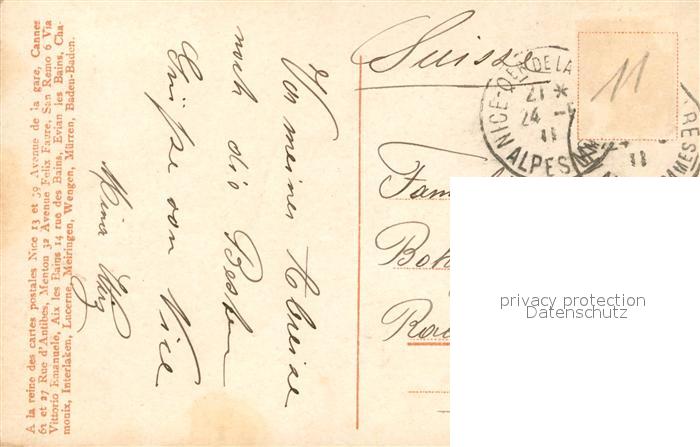 A la reine des cartes postales Nice 13 et 39 Avenue de la gare, Cannes
61 et 27 Rue d'Antibes, Menton 32 Avenue Felix Faure, San Remo 6 Via
Vittorio Emanuele, Aix les Bains 14 rue des Bains, Evian les Bains, Cha-
monix, Interlaken, Lucerne, Meiringen, Wengen, Mürren, Baden-Baden.
Vor meiner Abreise
noch die Besten
Grüsse von Nice
Mina
Suisse
11
NICE
DE LA
21 *
24
11
ALPES
11
Fam
Ro
privacy protection
Datenschutz